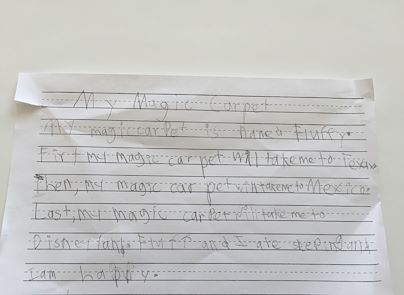 My Magic Carpet
My magic carpet is named Fluffy.
First my magic carpet will take me to Texas.
Then, my magic carpet will take me to Mexico.
Last, my magic carpet will take me to
Disneyland. Fluff and I are sleeping and
I am happy.